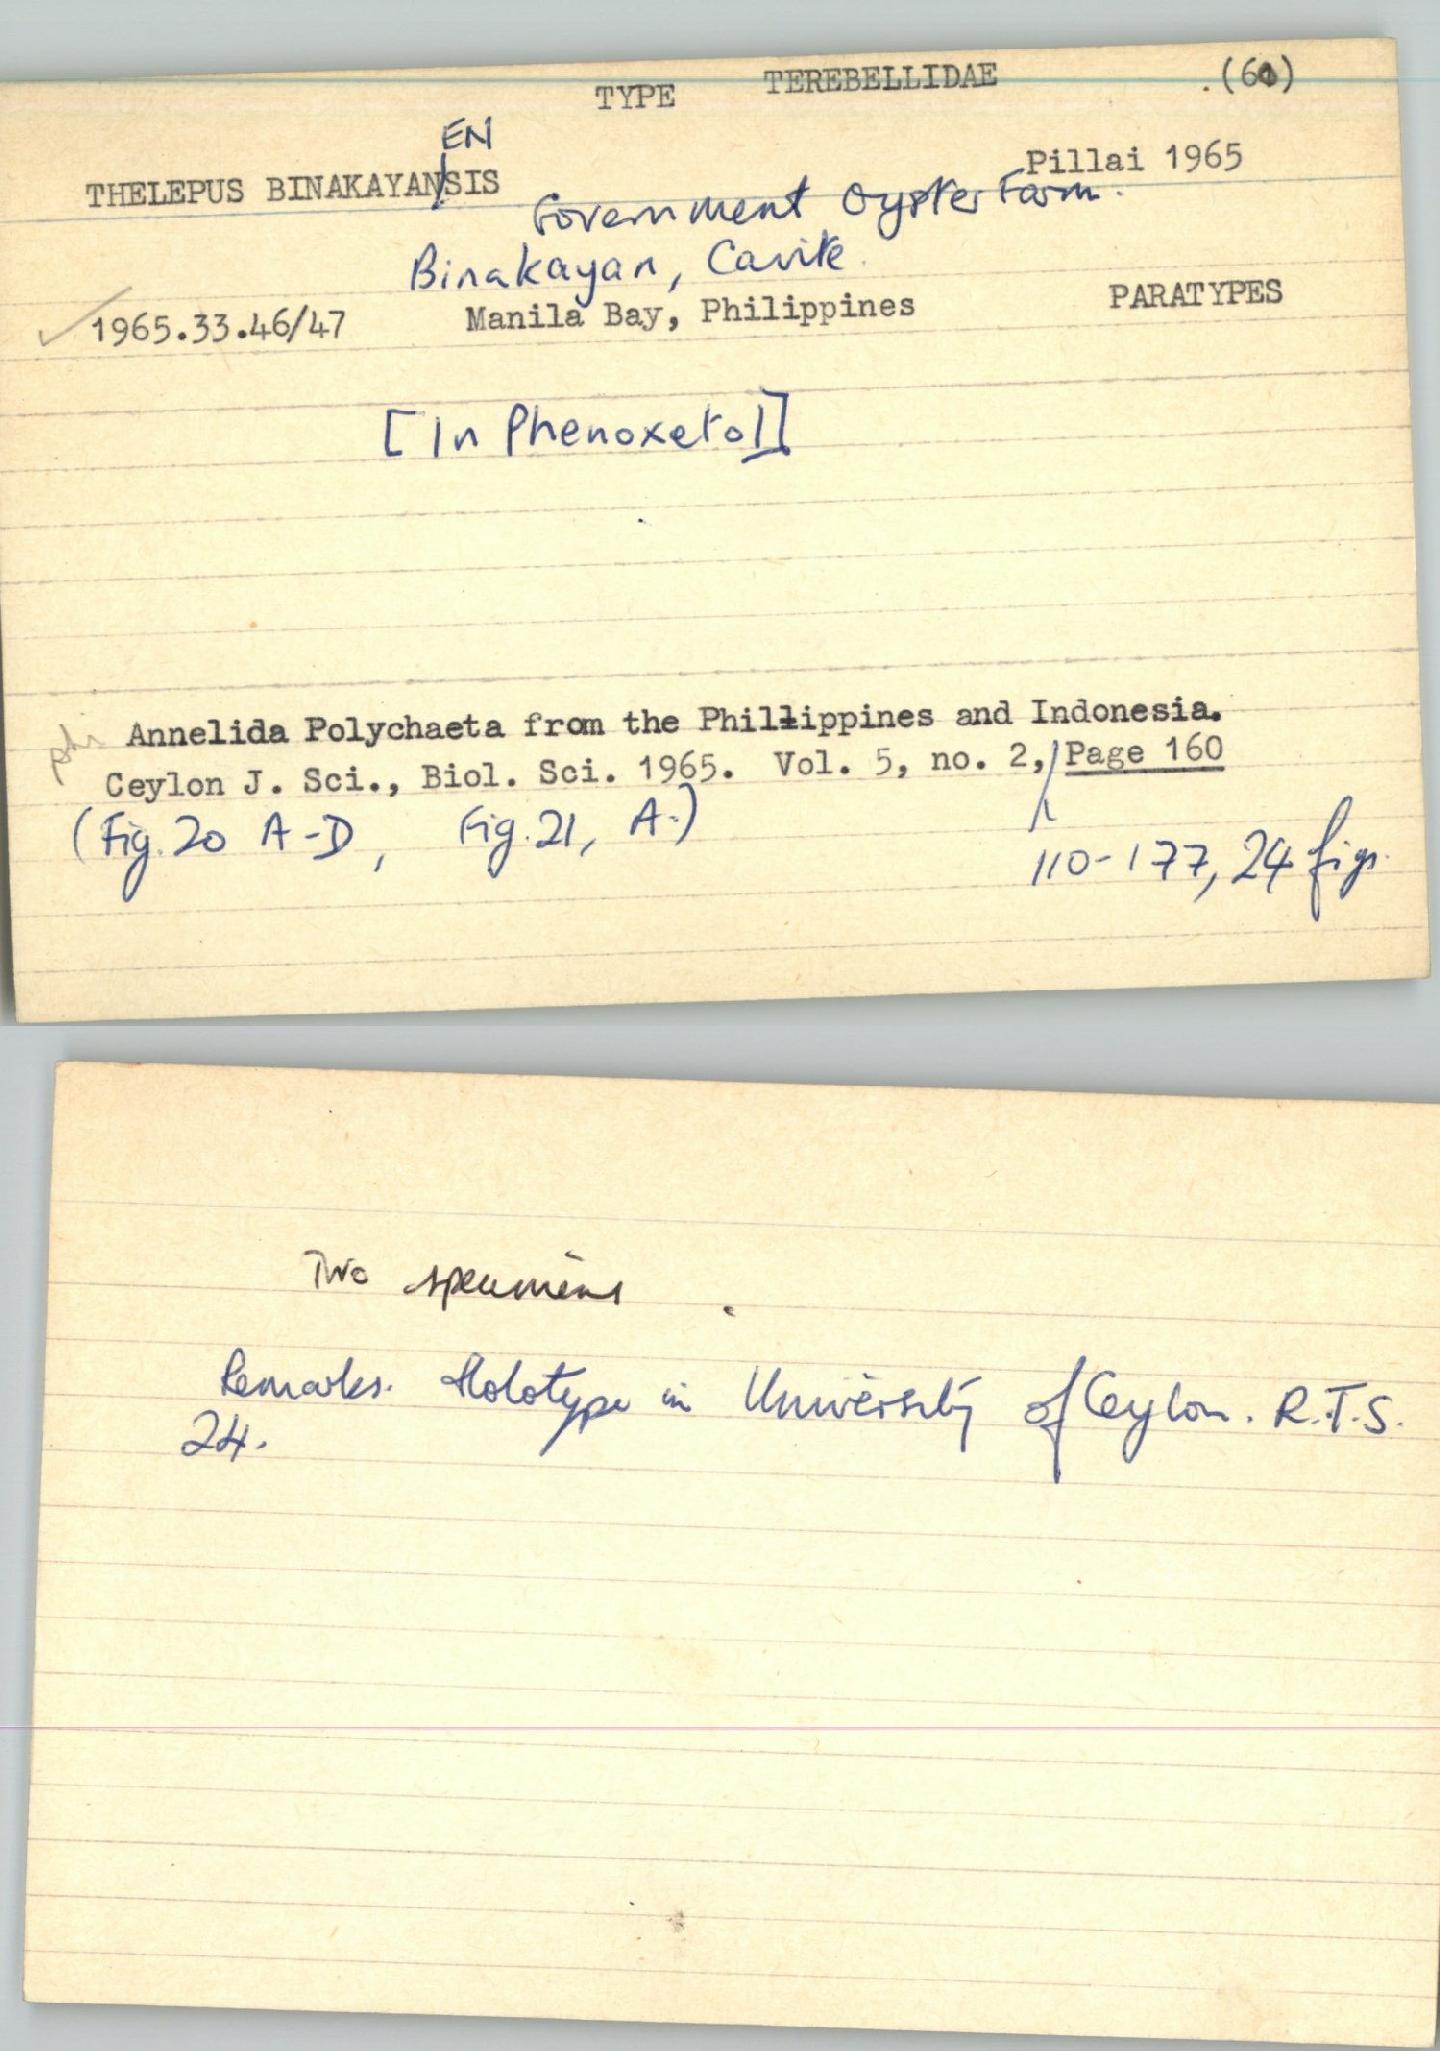 TYPE TEREBELLIDAE (60)
EN
THELEPUS BINAKAYANSIS Pillai 1965
Government Oyster Farm.
Binakayan, Cavite.
1965.33.46/47 Manila Bay, Philippines PARATYPES
[In Phenoxetol]
Annelida Polychaeta from the Phillippines and Indonesia.
Ceylon J. Sci., Biol. Sci. 1965. Vol. 5, no. 2, Page 160
(Fig. 20 A-D, Fig. 21, A.)
110-177, 24 figs.
Two specimens.
Remarks. Holotype in University of Ceylon. R.T.S.
24.